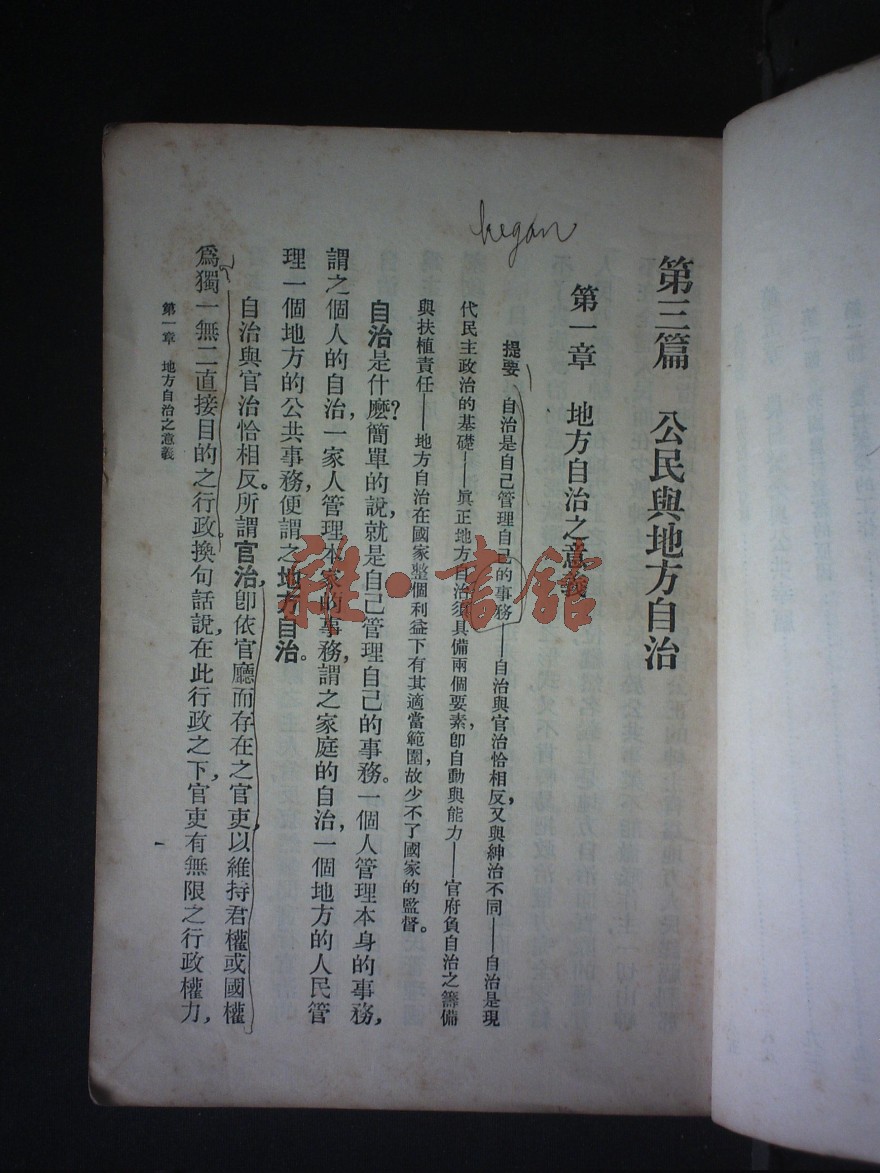 began
第三篇　公民與地方自治
第一章　地方自治之意義
提要　自治是自己管理自己的事務——自治與官治恰相反，又與紳治不同——自治是現
代民主政治的基礎——眞正地方自治須具備兩個要素，卽自動與能力——官府負自治之籌備
與扶植責任——地方自治在國家整個利益下有其適當範圍，故少不了國家的監督。
自治是什麽？簡單的說，就是自己管理自己的事務。一個人管理本身的事務，
謂之個人的自治，一家人管理本家的事務，謂之家庭的自治，一個地方的人民管
理一個地方的公共事務，便謂之地方自治。
自治與官治恰相反。所謂官治，卽依官廳而存在之官吏，以維持君權或國權
爲獨一無二直接目的之行政。換句話說，在此行政之下，官吏有無限之行政權力，
第一章　地方自治之意義
雜·書館